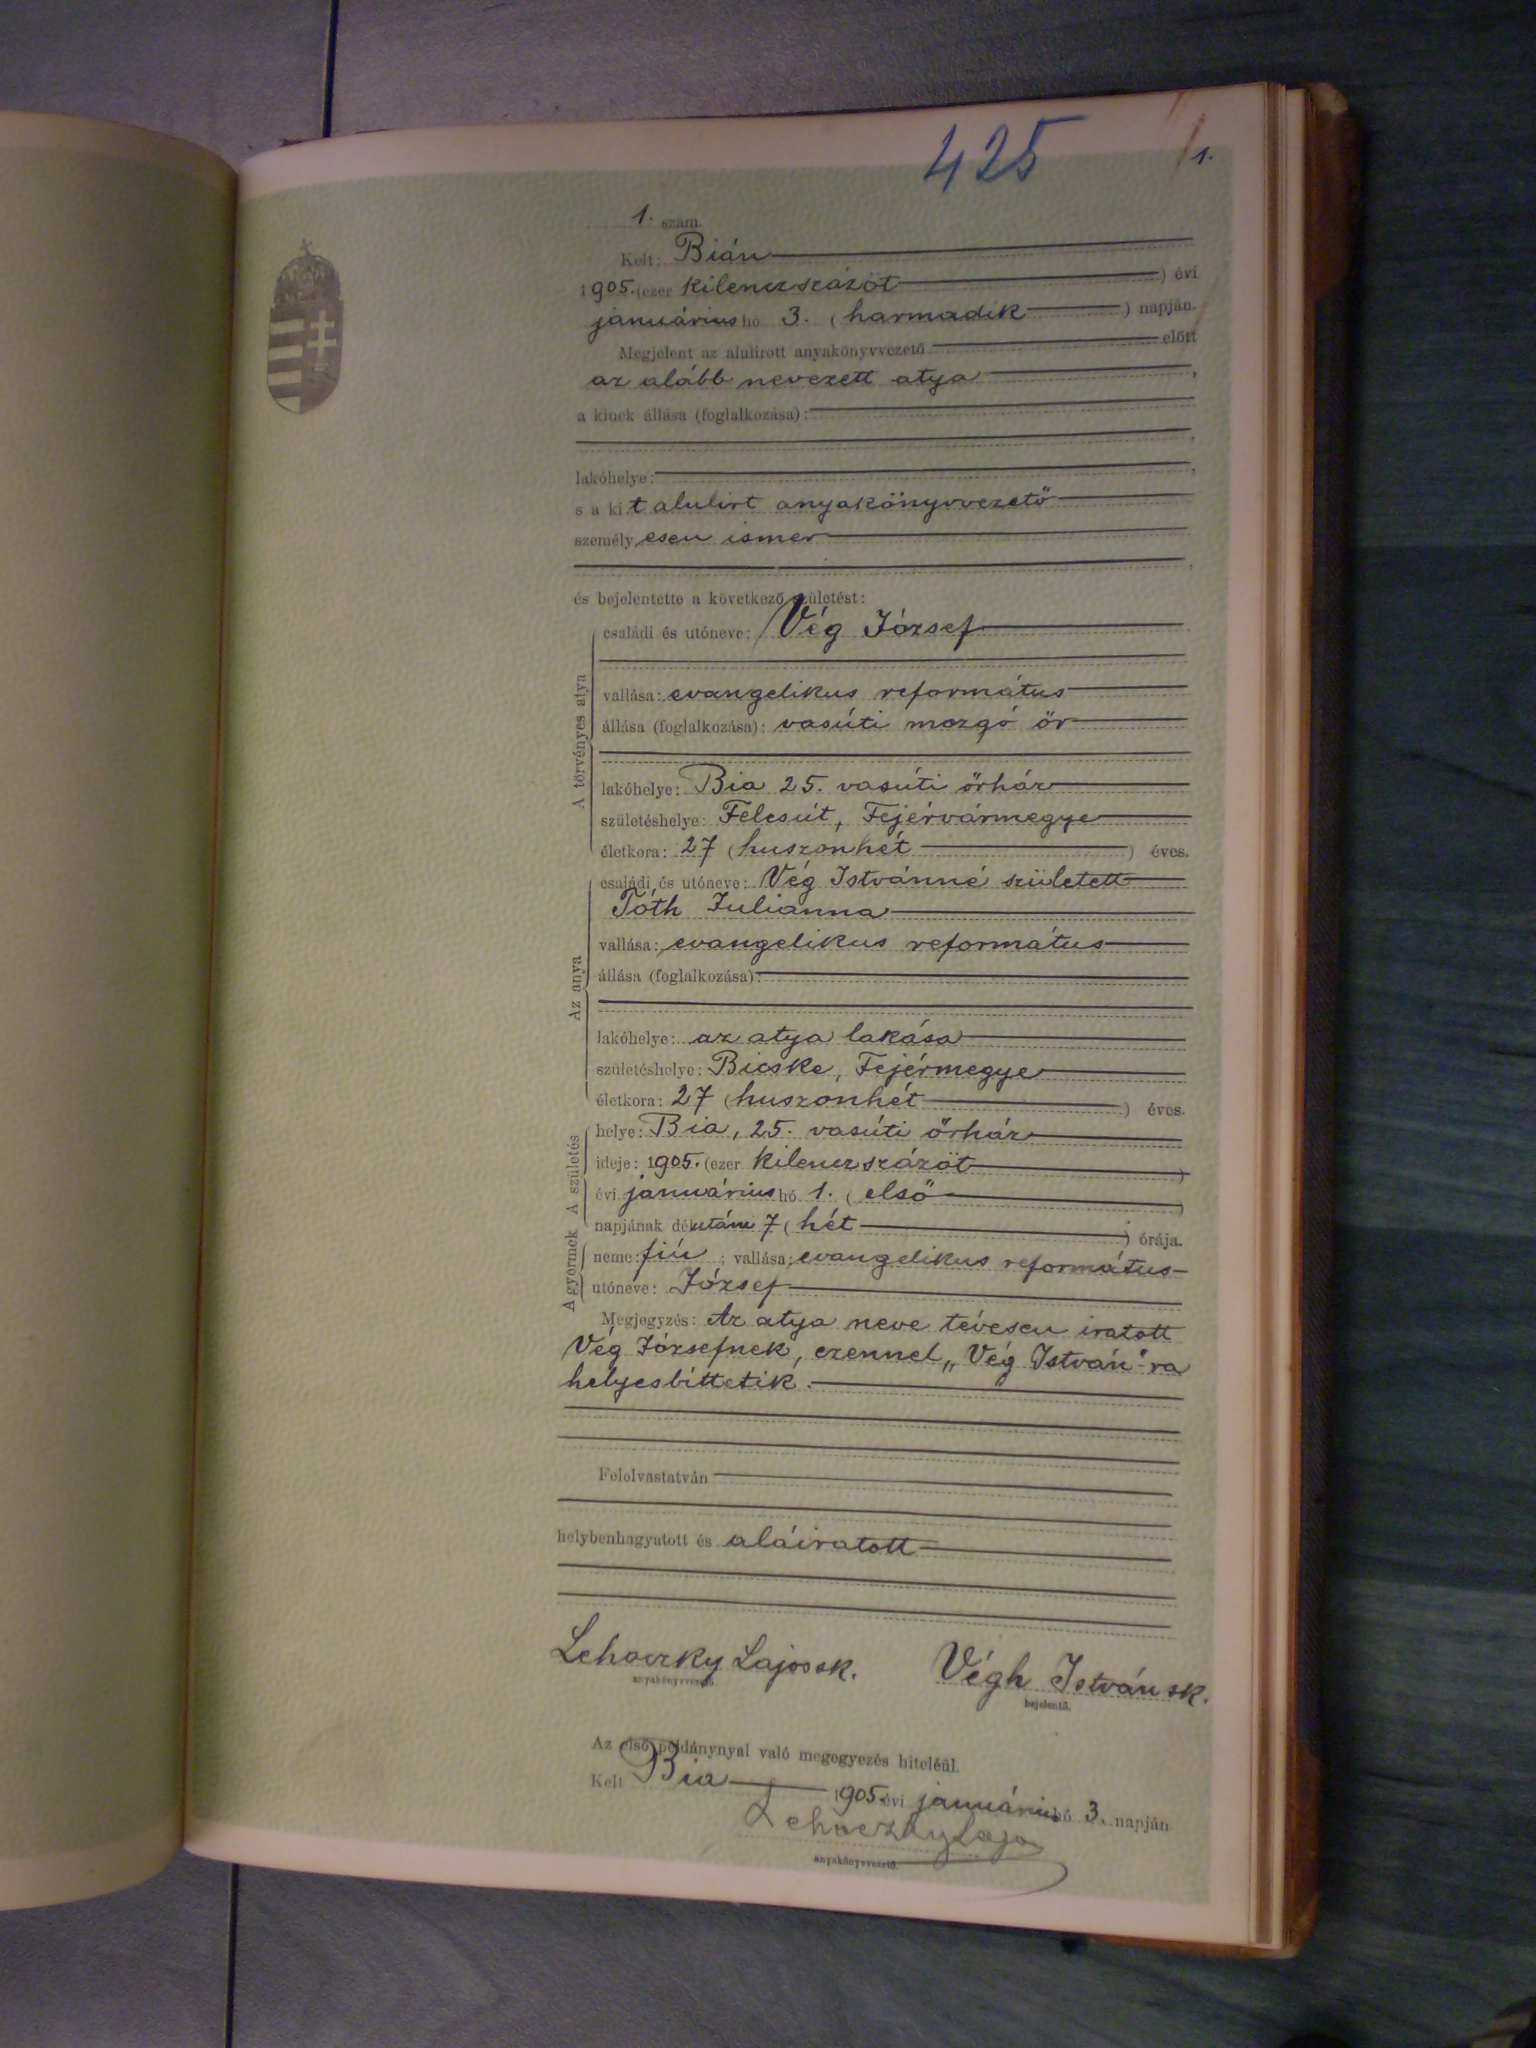 425
1.
1. szám.
Kelt: Bián
1905. (ezer kilenczszázöt) évi
januárius hó 3. (harmadik) napján.
Megjelent az alulirott anyakönyvvezető előtt
az alább nevezett atya,
a kinek állása (foglalkozása):
lakóhelye:
s a kit alulirt anyakönyvvezető
személyesen ismer
és bejelentette a következő születést:
A törvényes atya
családi és utóneve: Vég József
vallása: evangelikus református
állása (foglalkozása): vasúti mozgó őr
lakóhelye: Bia 25. vasúti őrház
születéshelye: Felcsút, Fejérvármegye
életkora: 27 (huszonhét) éves.
Az anya
családi és utóneve: Vég Istvánné született
Tóth Julianna
vallása: evangelikus református
állása (foglalkozása):
lakóhelye: az atya lakása
születéshelye: Bicske, Fejérmegye
életkora: 27 (huszonhét) éves.
A születés
helye: Bia, 25. vasúti őrház
ideje: 1905. (ezer kilenczszázöt)
évi januárius hó 1. (első)
napjának délutáni 7 (hét) órája.
A gyermek
neme: fiú; vallása: evangelikus református
utóneve: József
Megjegyzés: Az atya neve tévesen iratott
Vég Józsefnek, ezennel „Vég István"-ra
helyesbíttetik.
Felolvastatván
helybenhagyatott és aláiratott
Lehoczky Lajos sk. Végh István sk.
anyakönyvvezető bejelentő.
Az első példánynyal való megegyezés hiteléül.
Kelt Bia 1905 évi januárius hó 3. napján
Lehoczky Lajos
anyakönyvvezető.